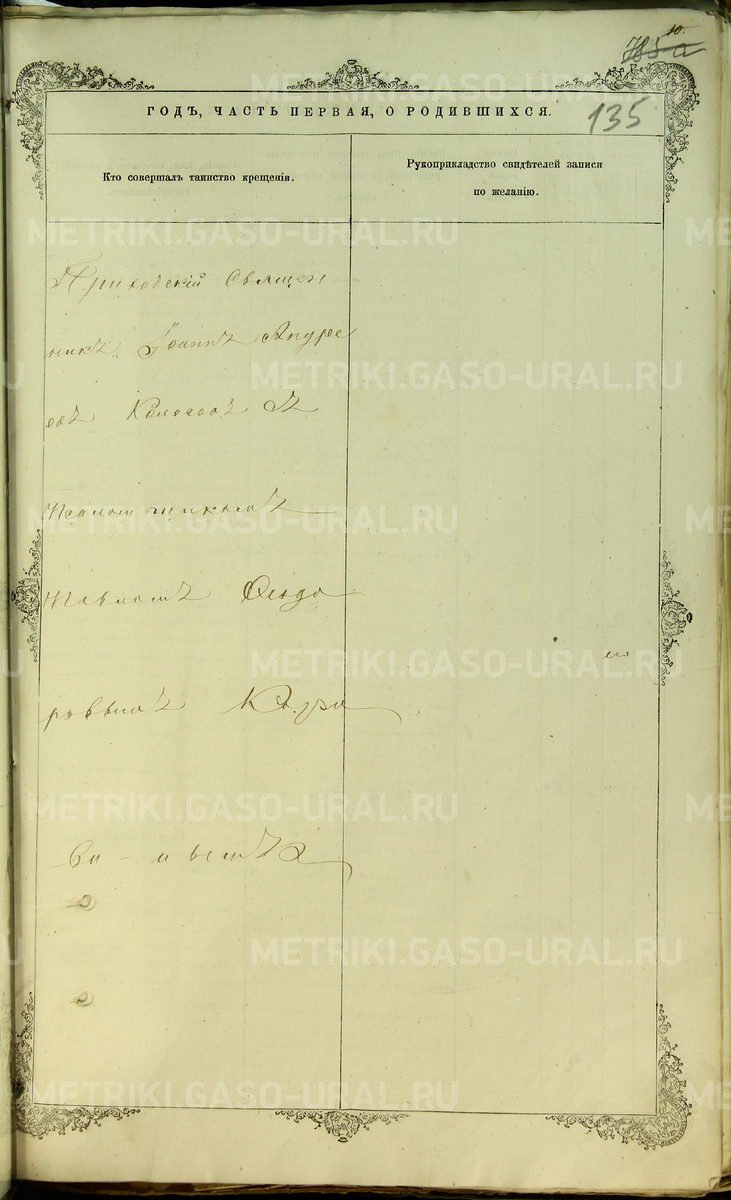 10.
135
ГОДЪ, ЧАСТЬ ПЕРВАЯ, О РОДИВШИХСЯ.
Кто совершалъ таинство крещенія.
Рукоприкладство свидѣтелей записи
по желанію.
Приходскій Священ
никъ Іоаннъ Андре
евъ Колосовъ съ
псаломщикомъ
Павломъ Ѳедо
ровымъ
METRIKI.GASO-URAL.RU